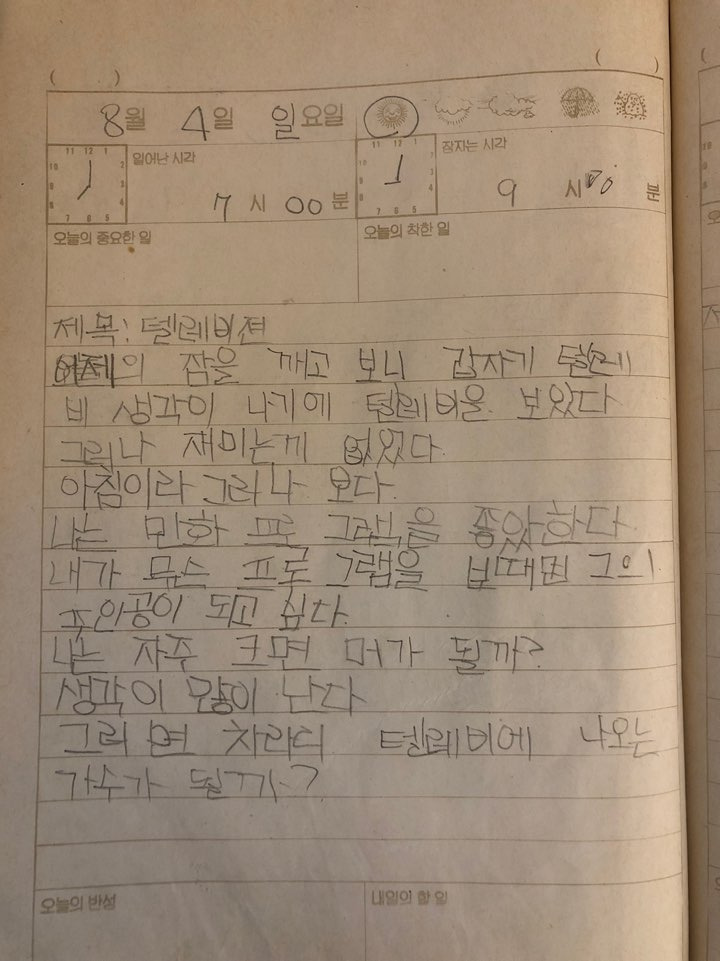 ( ) ( )
8월 4일 일요일
11 12 1 10 2 9 3 8 4 7 6 5 일어난 시각 7시 00분
11 12 1 10 2 9 3 8 4 7 6 5 잠자는 시각 9시 00분
오늘의 중요한 일 오늘의 착한 일
제목: 텔레비젼
잠을 깨고 보니 갑자기 텔레
비 생각이 나기에 텔레비을 보았다
그러나 재미는게 없었다.
아침이라 그러나 보다.
나는 만화 프로그램을 좋았하다
내가 무슨 프로그램을 볼때면 그의
주인공이 되고 싶다.
나는 자주 크면 머가 될까?
생각이 많이 난다
그러면 차라리 텔레비에 나오는
가수가 될까?
오늘의 반성 내일의 할 일